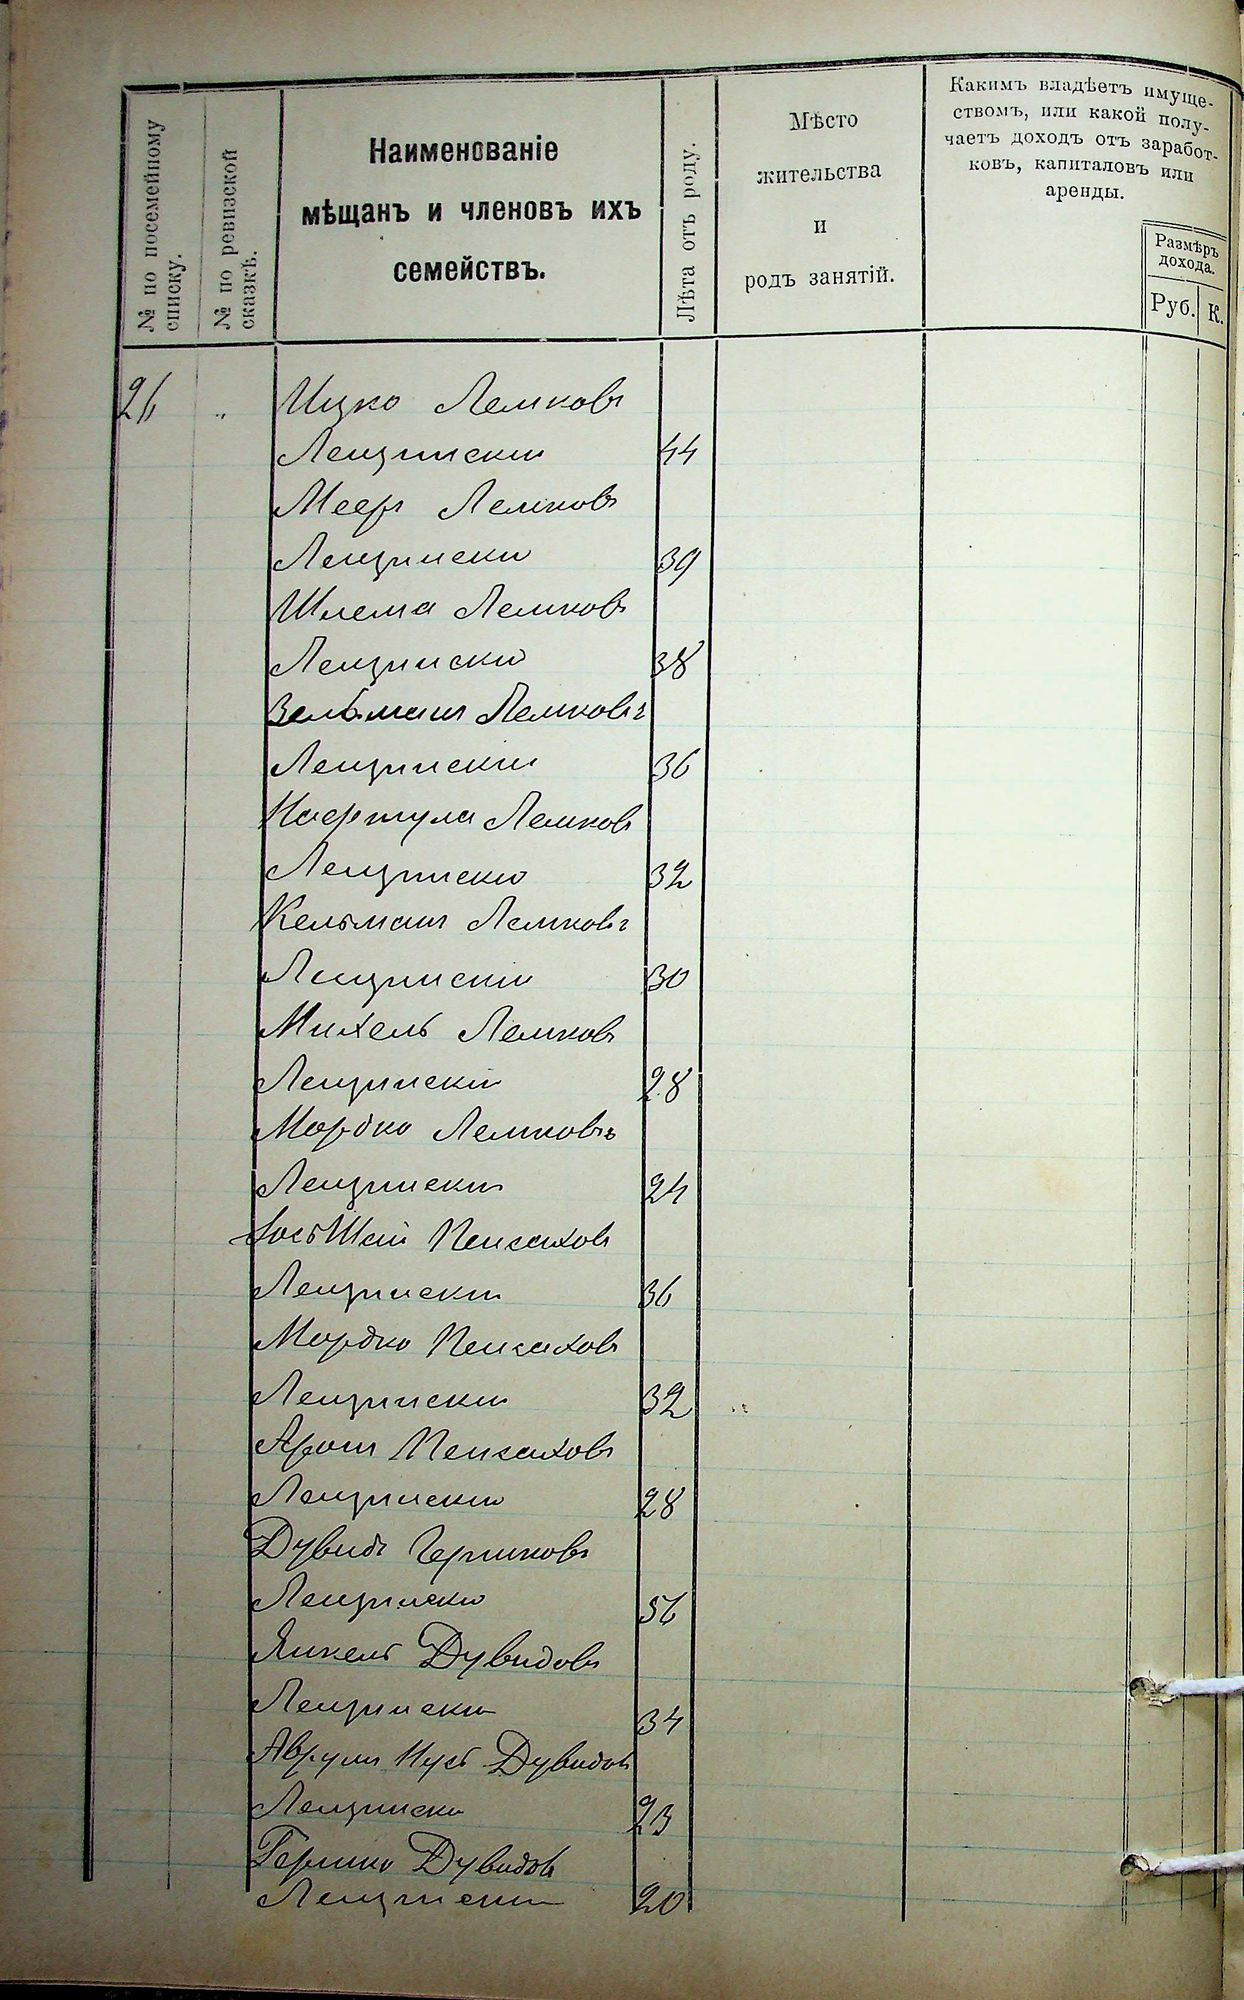 № по посемейному
списку.
№ по ревизской
сказкѣ.
Наименованіе
мѣщанъ и членовъ ихъ
семействъ.
Лѣта отъ роду.
Мѣсто
жительства
и
родъ занятій.
Какимъ владѣетъ имуще-
ствомъ, или какой полу-
чаетъ доходъ отъ заработ-
ковъ, капиталовъ или
аренды.
Размѣръ
дохода.
Руб. К.
26 " Ицко Лемковъ
Лещинскій 44
Мееръ Лемковъ
Лещинскій 39
Шлема Лемковъ
Лещинскій 38
Зельманъ Лемковъ
Лещинскій 36
Нафтула Лемковъ
Лещинскій 32
Кельманъ Лемковъ
Лещинскій 30
Михель Лемковъ
Лещинскій 28
Мордко Лемковъ
Лещинскій 24
Пейсаховъ
Лещинскій 36
Мордко Пейсаховъ
Лещинскій 32
Аронъ Пейсаховъ
Лещинскій 28
Дувидъ Гершковъ
Лещинскій 56
Янкель Дувидовъ
Лещинскій 34
Аврумъ Нусъ Дувидовъ
Лещинскій 23
Гершко Дувидовъ
Лещинскій 20